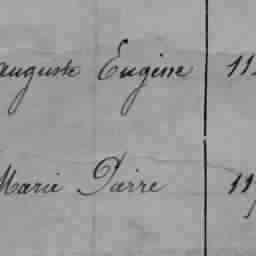 auguste Eugène 11
Marie Pierre 11